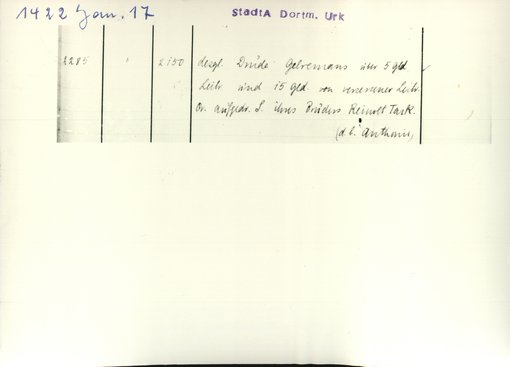 1422 Jan. 17
StadtA Dortm. Urk
2285 2150 desgl. Drude Gelremans über 5 gld
Leibr. und 15 gld. von versessener Leibr.
Or. aufgedr. S. ihres Bruders Reinolt Task.
(d. b. Anthonii)